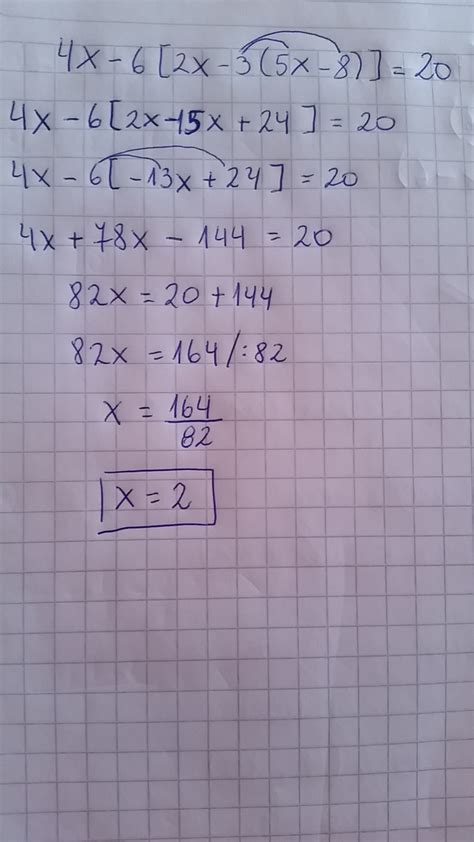 4x - 6 [2x - 3 (5x - 8)] = 20
4x - 6 [2x - 15x + 24] = 20
4x - 6 [-13x + 24] = 20
4x + 78x - 144 = 20
82x = 20 + 144
82x = 164 /: 82
x = 164/82
x = 2